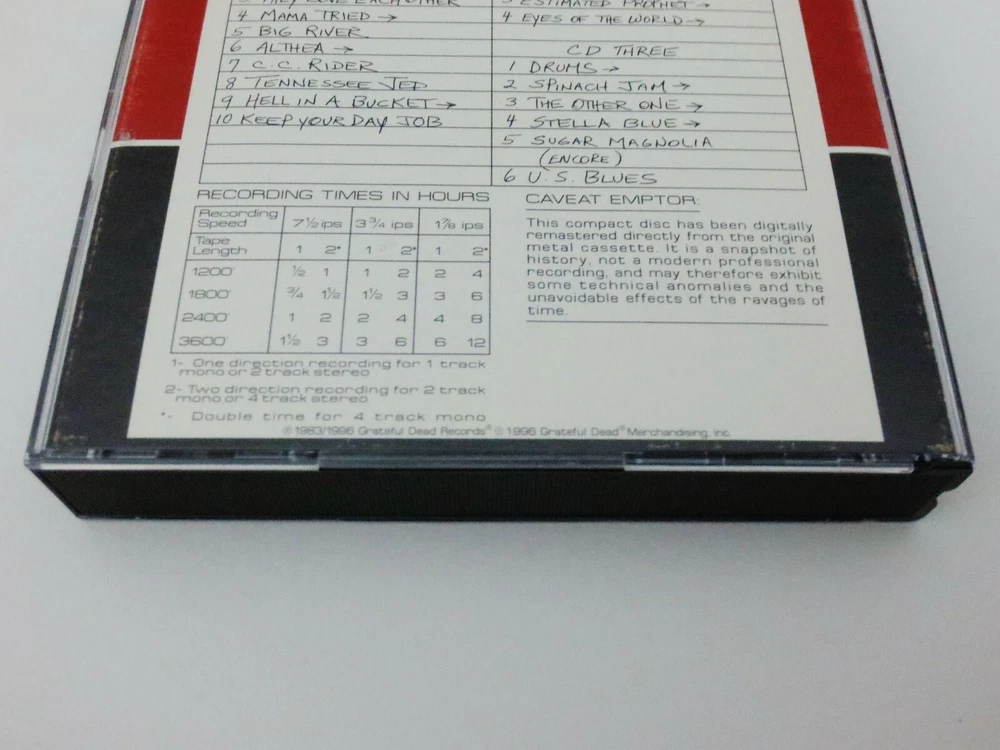 3 THEY LOVE EACH OTHER
4 MAMA TRIED →
5 BIG RIVER
6 ALTHEA →
7 C.C. RIDER
8 TENNESSEE JED
9 HELL IN A BUCKET →
10 KEEP YOUR DAY JOB
3 ESTIMATED PROPHET →
4 EYES OF THE WORLD →
CD THREE
1 DRUMS →
2 SPINACH JAM →
3 THE OTHER ONE →
4 STELLA BLUE →
5 SUGAR MAGNOLIA
(ENCORE)
6 U.S. BLUES
RECORDING TIMES IN HOURS
Recording Speed 7½ ips 3¾ ips 1⅞ ips
Tape Length 1 2* 1 2* 1 2*
1200' ½ 1 1 2 2 4
1800' ¾ 1½ 1½ 3 3 6
2400' 1 2 2 4 4 8
3600' 1½ 3 3 6 6 12
1- One direction recording for 1 track
mono or 2 track stereo
2- Two direction recording for 2 track
mono or 4 track stereo
*- Double time for 4 track mono
CAVEAT EMPTOR:
This compact disc has been digitally
remastered directly from the original
metal cassette. It is a snapshot of
history, not a modern professional
recording, and may therefore exhibit
some technical anomalies and the
unavoidable effects of the ravages of
time.
℗1983/1996 Grateful Dead Records® ©1996 Grateful Dead® Merchandising, Inc.